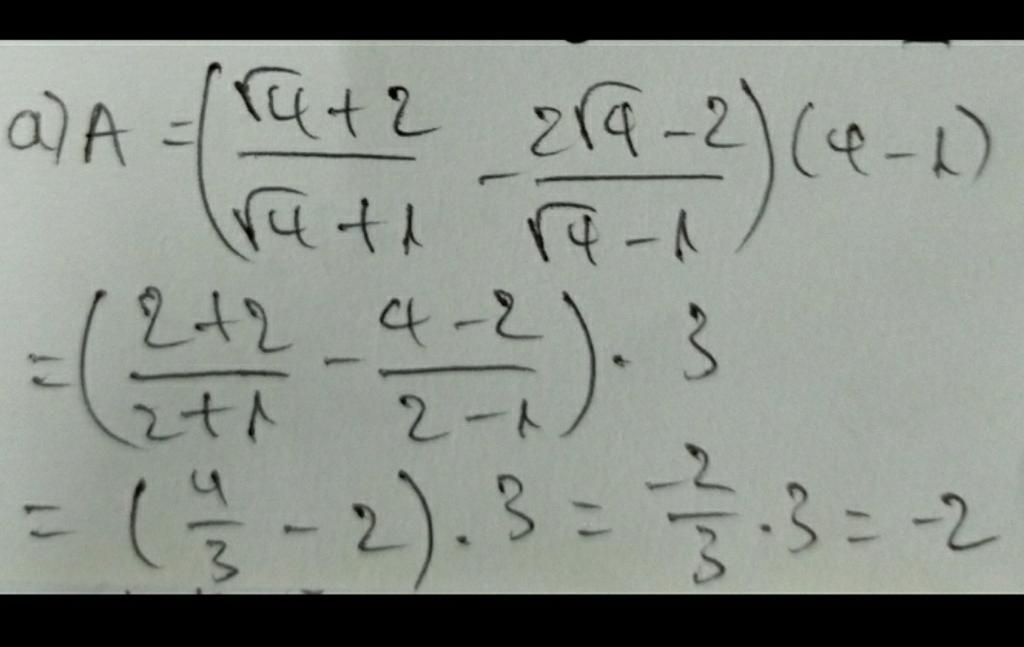 a) A = ( (√4 + 2)/(√4 + 1) - (2√4 - 2)/(√4 - 1) ) (4 - 1)
= ( (2 + 2)/(2 + 1) - (4 - 2)/(2 - 1) ) . 3
= ( 4/3 - 2 ) . 3 = -2/3 . 3 = -2